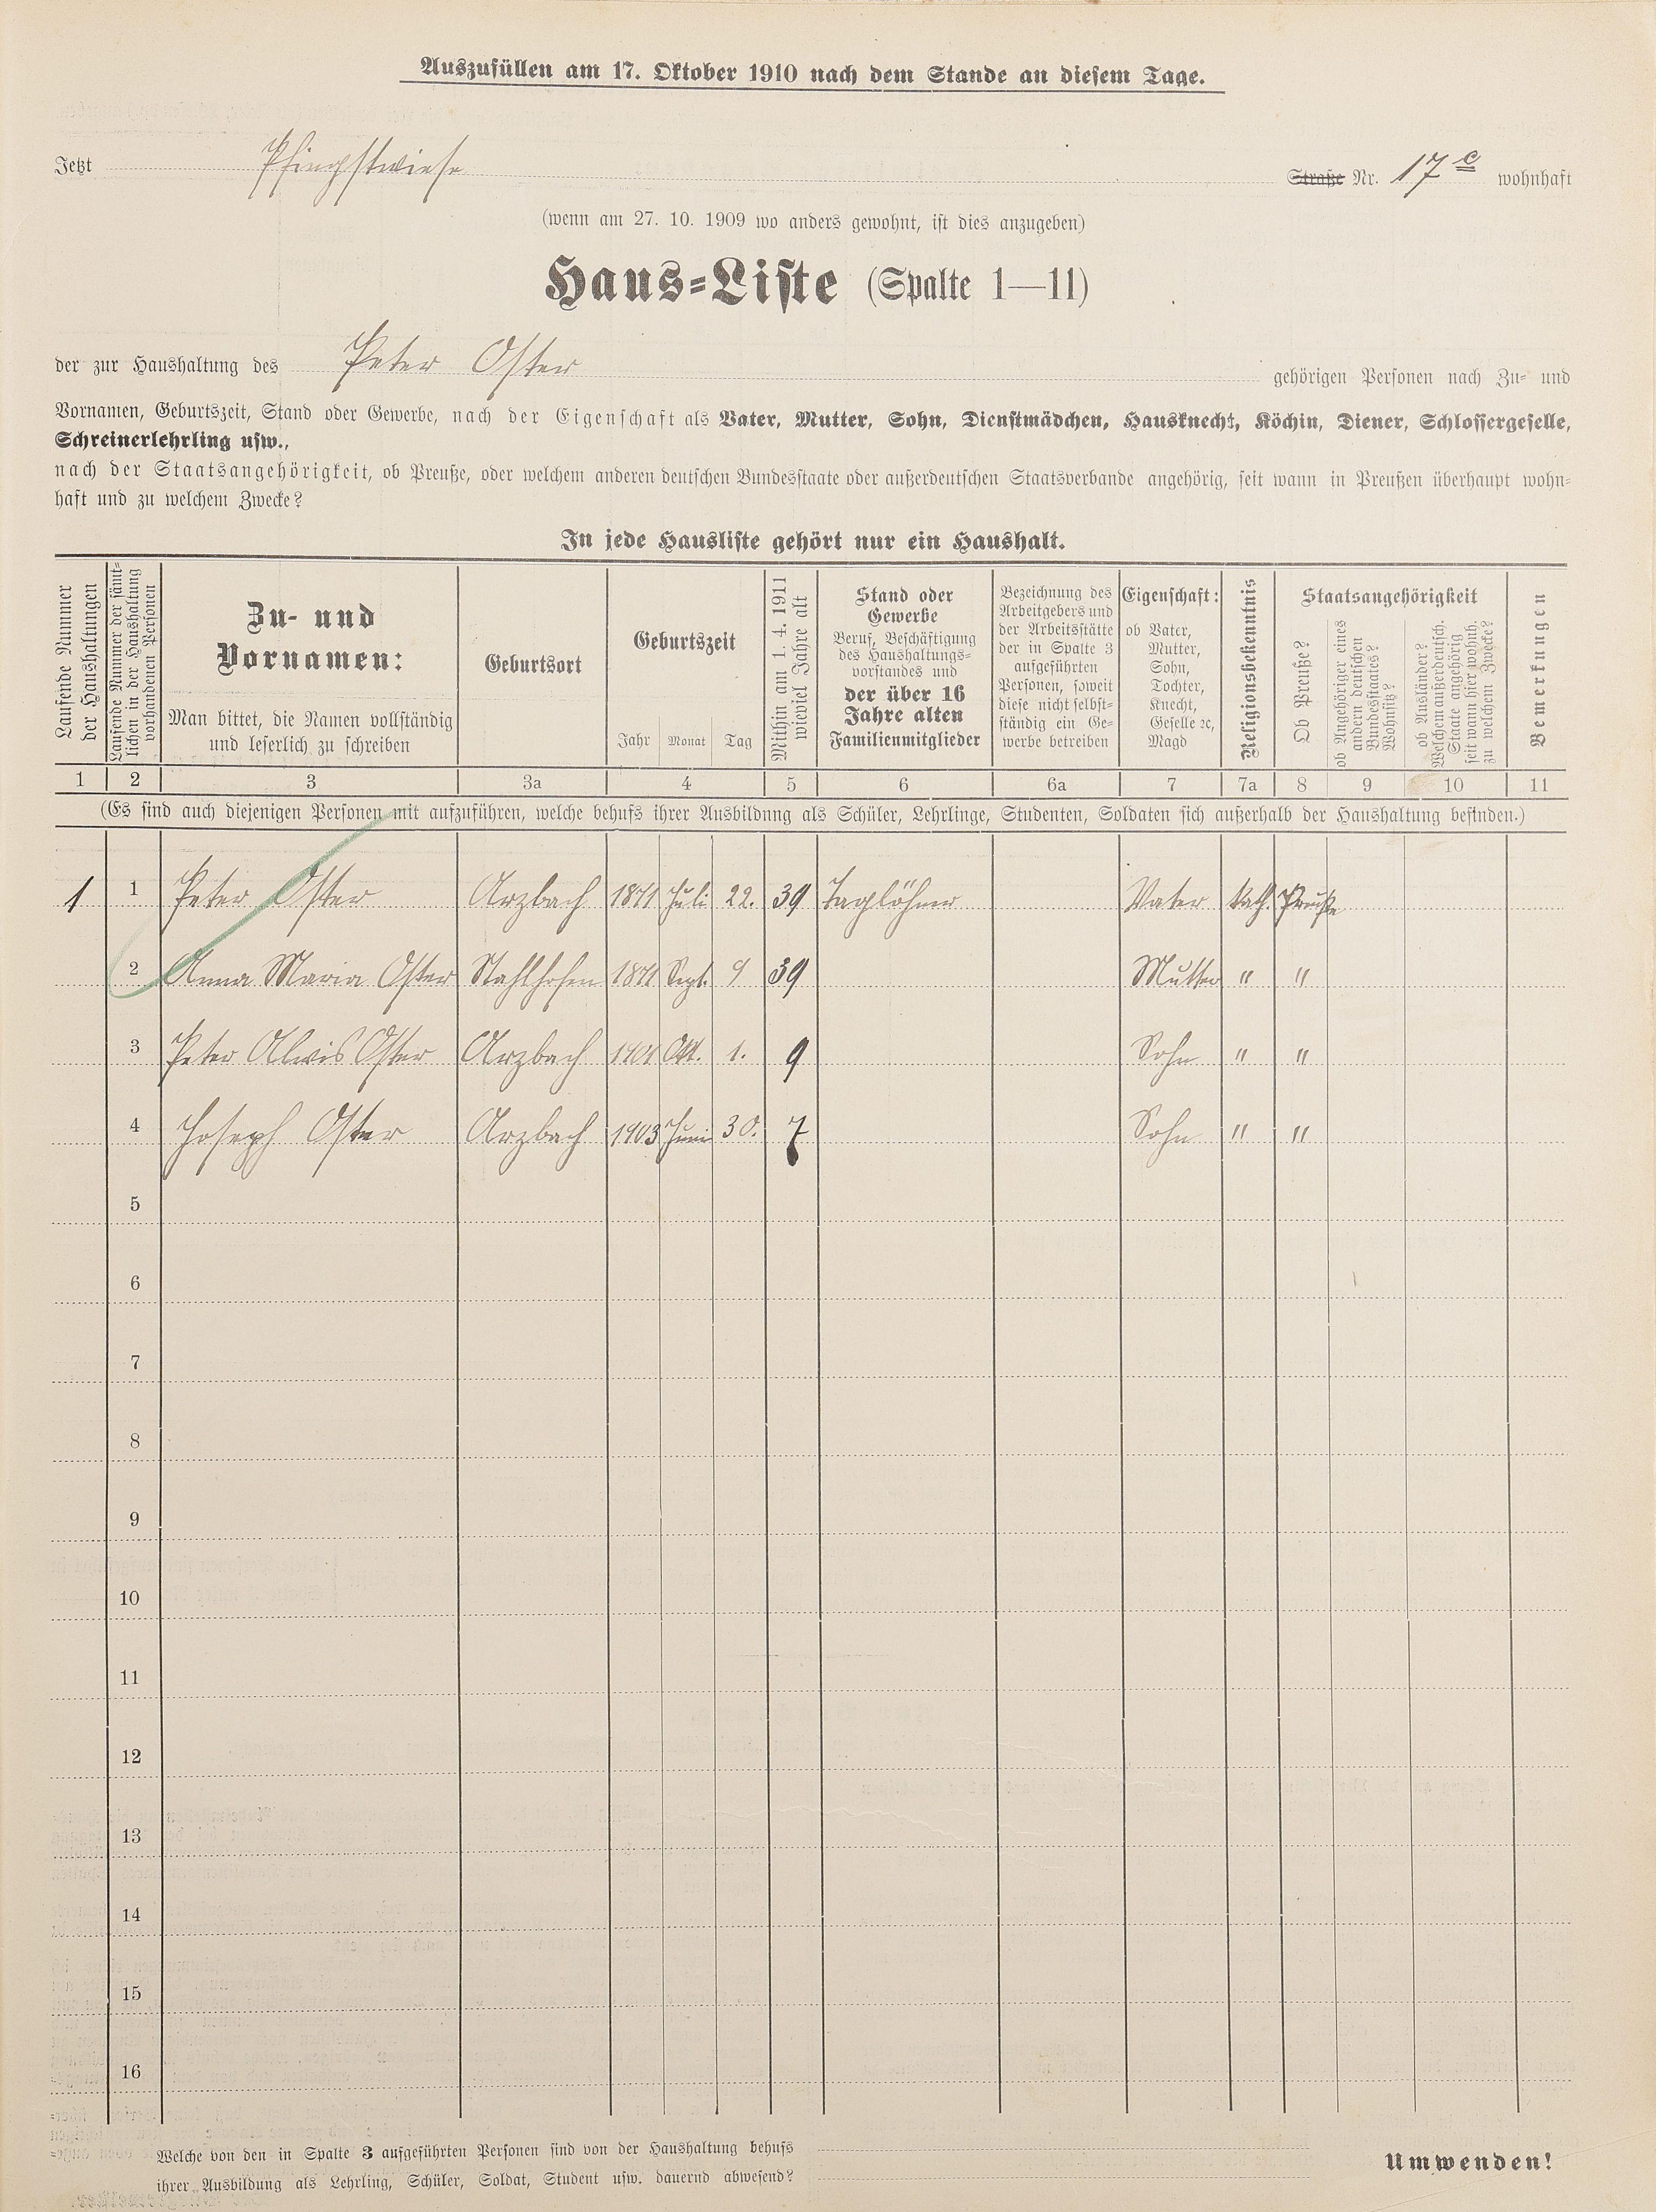 Auszufüllen am 17. Oktober 1910 nach dem Stande an diesem Tage.
Jetzt Pfingstwiese Straße Nr. 17c wohnhaft
(wenn am 27. 10. 1909 wo anders gewohnt, ist dies anzugeben)
Haus-Liste (Spalte 1—11)
der zur Haushaltung des Peter Oster gehörigen Personen nach Zu- und
Vornamen, Geburtszeit, Stand oder Gewerbe, nach der Eigenschaft als Vater, Mutter, Sohn, Dienstmädchen, Hausknecht, Köchin, Diener, Schlossergeselle,
Schreinerlehrling usw.,
nach der Staatsangehörigkeit, ob Preuße, oder welchem anderen deutschen Bundesstaate oder außerdeutschen Staatsverbande angehörig, seit wann in Preußen überhaupt wohn-
haft und zu welchem Zwecke?
In jede Hausliste gehört nur ein Haushalt.
Laufende Nummer
der Haushaltungen
Laufende Nummer der sämt-
lichen in der Haushaltung
vorhandenen Personen
Zu- und
Vornamen:
Man bittet, die Namen vollständig
und leserlich zu schreiben
Geburtsort
Geburtszeit
Jahr Monat Tag
Mithin am 1. 4. 1911
wieviel Jahre alt
Stand oder
Gewerbe
Beruf, Beschäftigung
des Haushaltungs-
vorstandes und
der über 16
Jahre alten
Familienmitglieder
Bezeichnung des
Arbeitgebers und
der Arbeitsstätte
der in Spalte 3
aufgeführten
Personen, soweit
diese nicht selbst-
ständig ein Ge-
werbe betreiben
Eigenschaft:
ob Vater,
Mutter,
Sohn,
Tochter,
Knecht,
Geselle ec,
Magd
Religionsbekenntnis
Staatsangehörigkeit
Ob Preuße?
ob Angehöriger eines
andern deutschen
Bundesstaates?
Wohnsitz?
ob Ausländer?
Welchem außerdeutsch.
Staate angehörig
seit wann hier wohnh.
zu welchem Zwecke?
Bemerkungen
1 2 3 3a 4 5 6 6a 7 7a 8 9 10 11
(Es sind auch diejenigen Personen mit aufzuführen, welche behufs ihrer Ausbildnng als Schüler, Lehrlinge, Studenten, Soldaten sich außerhalb der Haushaltung befinden.)
1 1 Peter Oster Arzbach 1871 Juli 22. 39 Taglöhner Vater kath. Preuße
2 Anna Maria Oster Stahlhofen 1871 Sept. 9 39 Mutter " "
3 Peter Alwis Oster Arzbach 1901 Okt. 1. 9 Sohn " "
4 Joseph Oster Arzbach 1903 Juni 30. 7 Sohn " "
5
6
7
8
9
10
11
12
13
14
15
16
Welche von den in Spalte 3 aufgeführten Personen sind von der Haushaltung behufs
ihrer Ausbildung als Lehrling, Schüler, Soldat, Student usw. dauernd abwesend?
Umwenden!